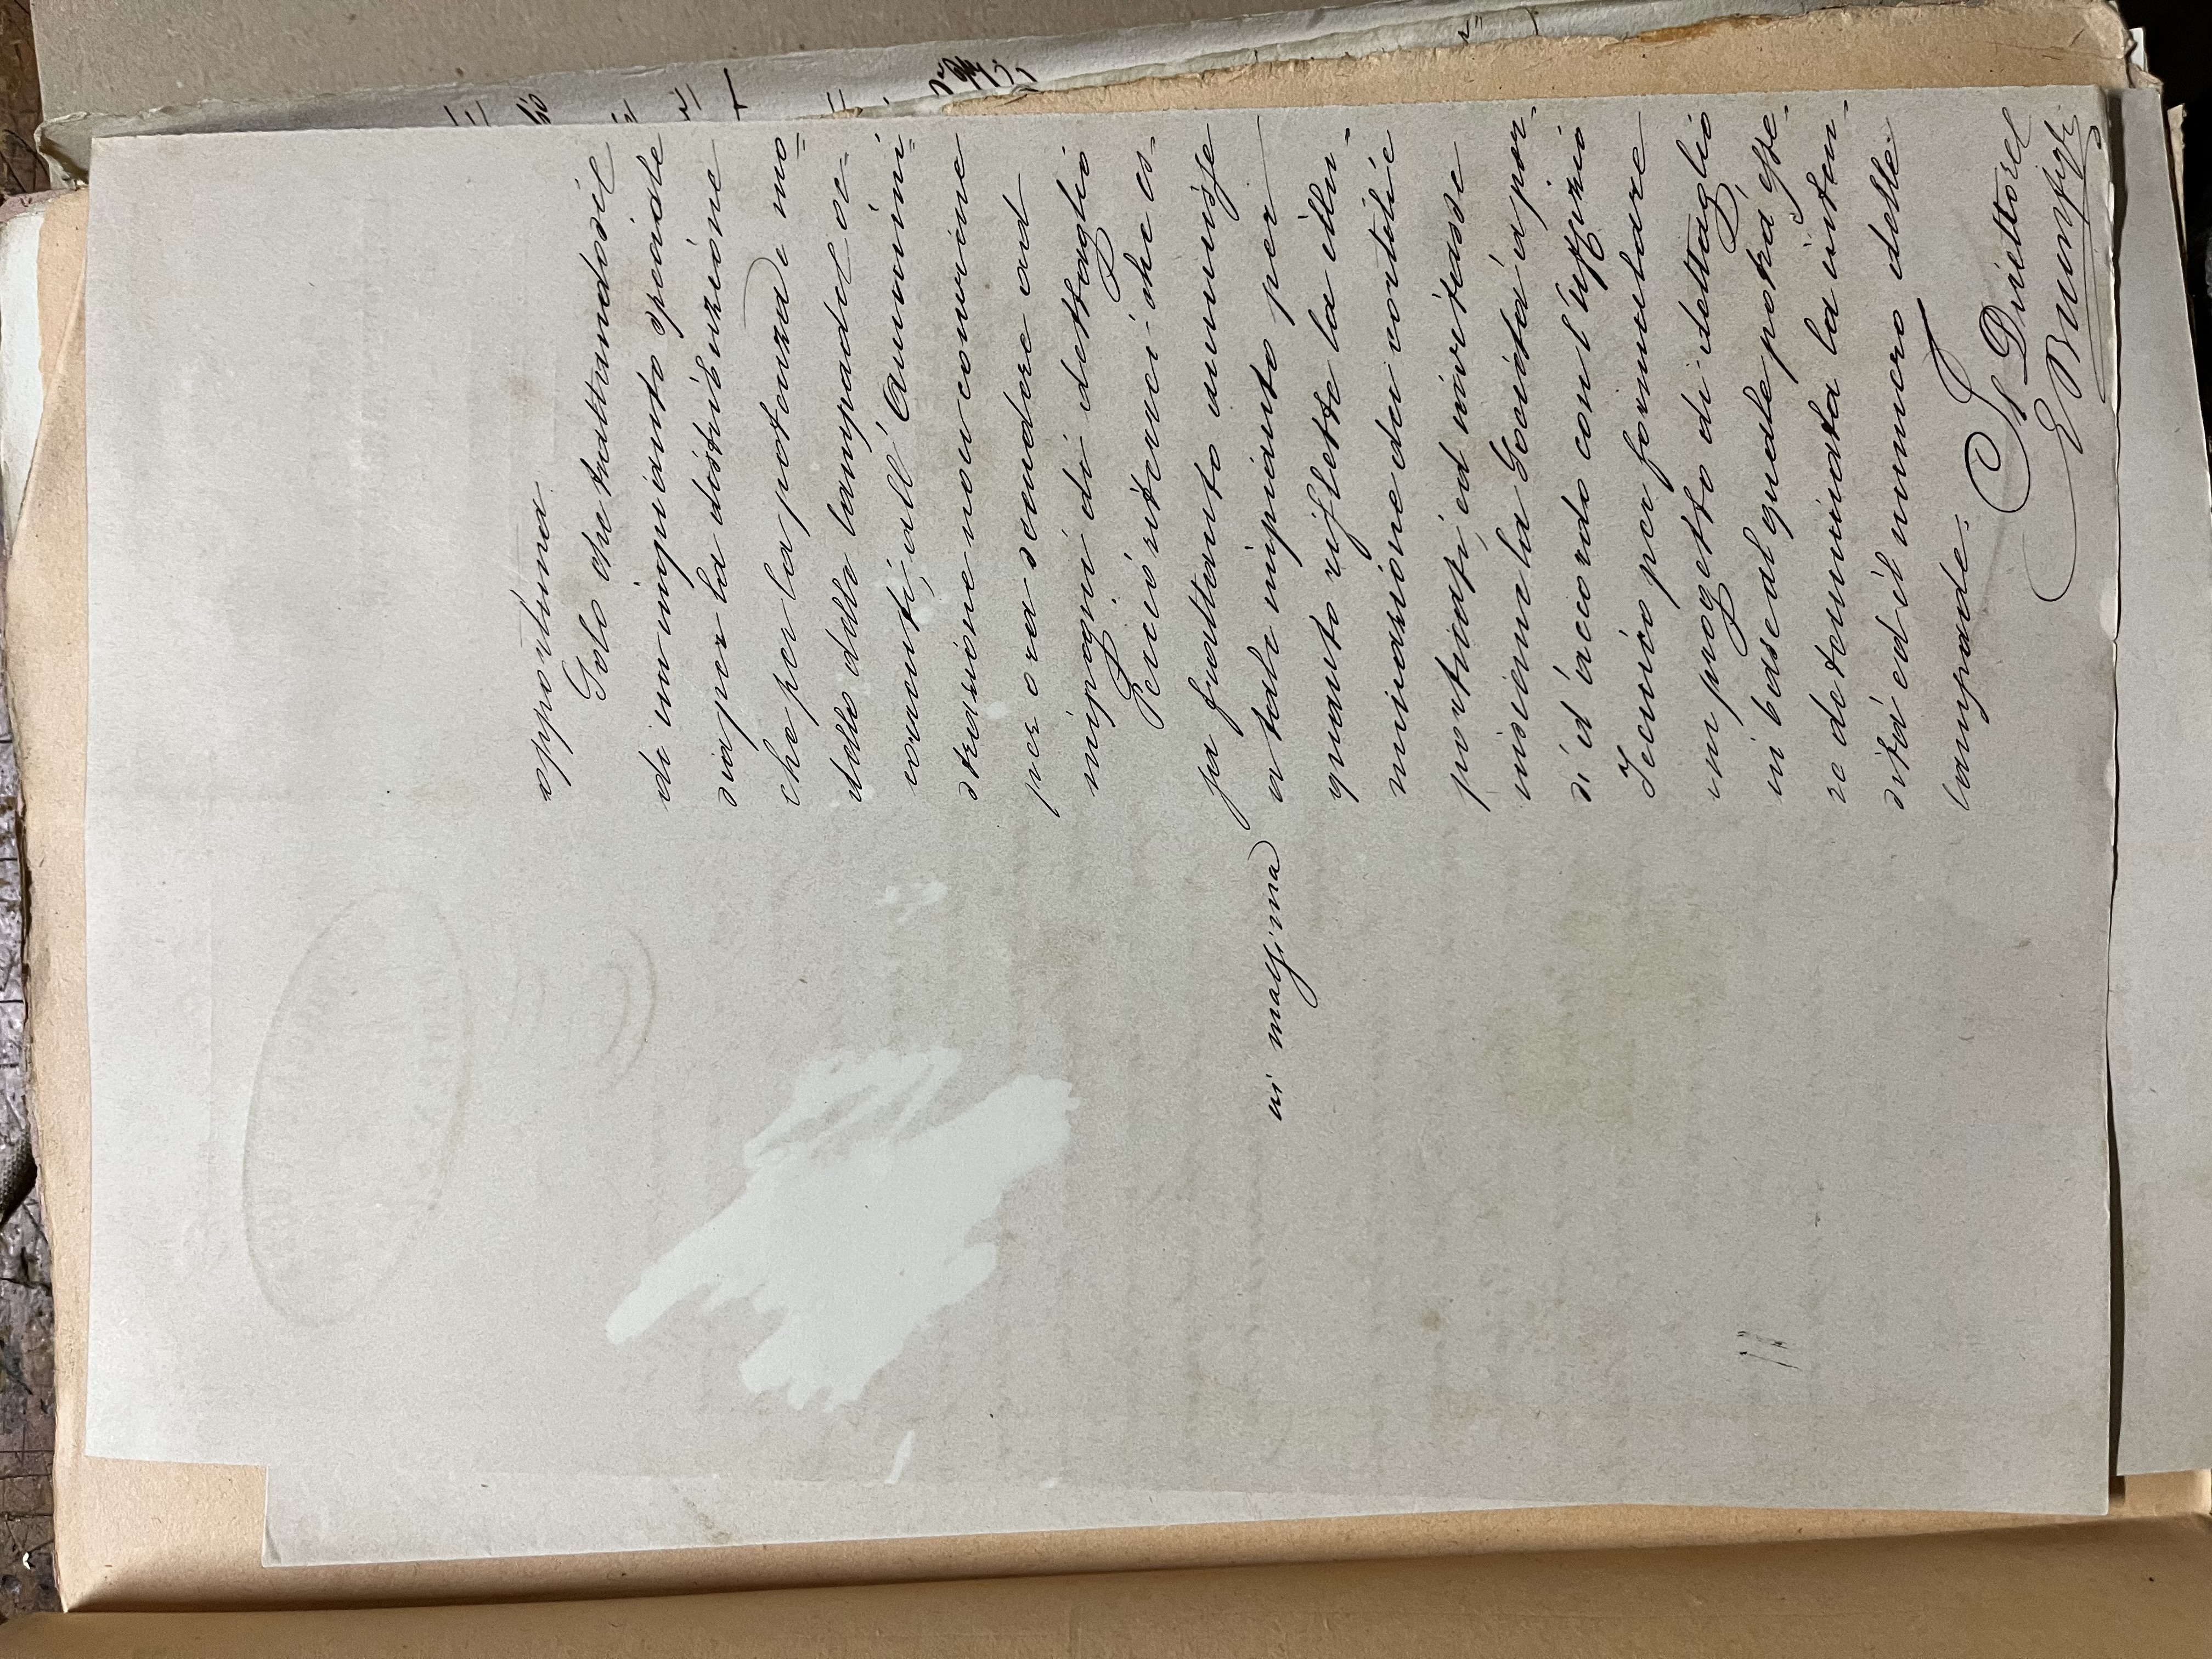 opportuna.
Solo che trattandosi
di un impianto speciale
sia per la distribuzione
che per la potenza e mo=
dello delle lampade oc-
correnti, all'Ammini=
strazione non conviene
per ora scendere ad
impegni di dettaglio
Perciò riterrei che es-
sa frattanto ammise
in massima
a tale impianto per
quanto riflette la illu-
minazione dei cortili e
porticati, ed invitasse
insieme la Società a por-
si d'accordo con l'Uffizio
Tecnico per formulare
un progetto di dettaglio
in base al quale potrà esse-
re determinata la inten-
sità ed il numero delle
lampade.
Il Direttore